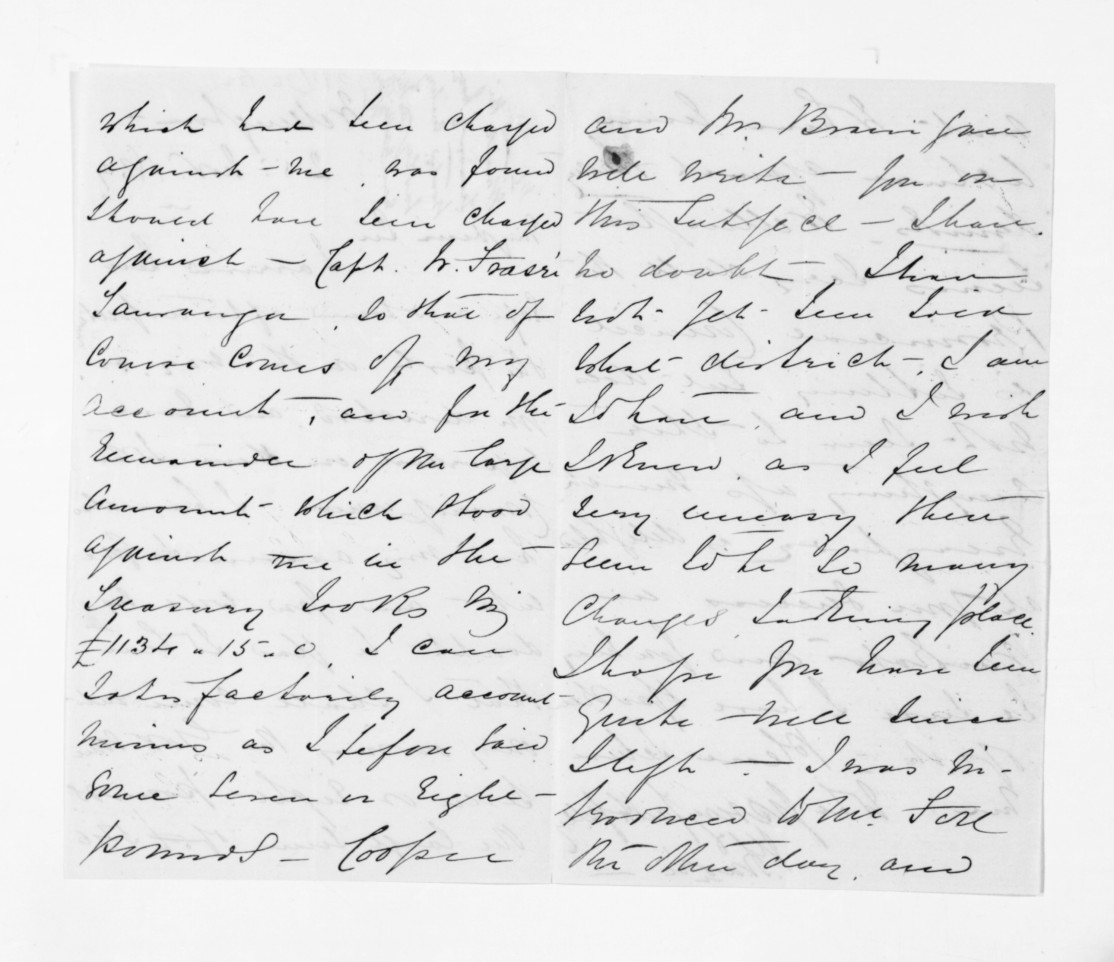 which had been charged
against - me was found
should have been charged
against - Capt. W. Fraser
Tauranga, so that of
course comes off my
account, and for the
remainder of the large
amount - which stood
against me in the
Treasury books viz
£1134 " 15 " 0, I can
satisfactorily account -
minus as I before said
some seven or eight -
pounds - Cooper
and Mr.
will write - you on
this subject - I have
no doubt - I have
not - yet - been told
what - district - I am
to have, and I wish
I knew, as I feel
very uneasy there
seem to be so many
changes taking place.
I hope you have been
quite well since
I left - I was in-
troduced to Mr.
the other day, and